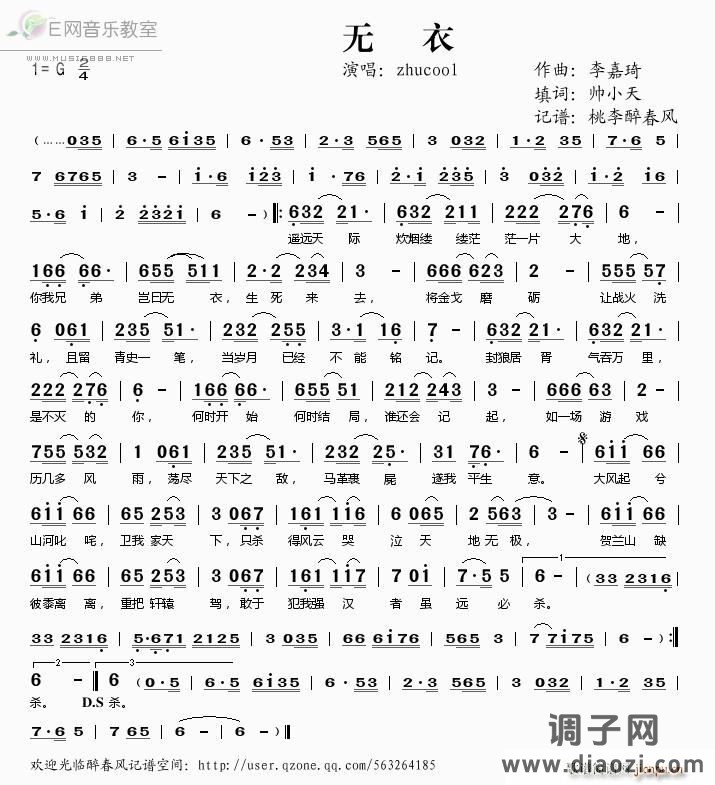 E网音乐教室
www.MUSIC888.NET
无 衣
1=G 2/4
演唱：zhucool
作曲：李嘉琦
填词：帅小天
记谱：桃李醉春风
(……035 | 6·5 6i35 | 6·53 | 2·3 565 | 3 032 | 1·2 35 | 7·6 5 |
7 6765 | 3 - | i·6 i2̇3̇ | i·7 6 | 2̇·i 2̇3̇5̇ | 3̇ 03̇2̇ | i·2̇ i6 |
5·6 i | 2̇ 2̇3̇2̇i | 6 - ) ‖: 632 21· | 632 211 | 222 276 | 6 - |
遥远天 际 炊烟缕 缕茫 茫一片 大 地，
166 66· | 655 511 | 2·2 234 | 3 - | 666 623 | 2 - | 555 57 |
你我兄 弟 岂曰无 衣，生 死 来 去， 将金戈 磨 砺 让战火 洗
6 061 | 235 51· | 232 255 | 3·1 16 | 7 - | 632 21· | 632 21· |
礼，且留 青史一 笔，当岁月 已经 不 能 铭 记。封狼居 胥 气吞万 里，
222 276 | 6 - | 166 66· | 655 51 | 212 243 | 3 - | 666 63 | 2 - |
是不灭 的 你， 何时开 始 何时结 局，谁还会 记 起， 如一场 游 戏
755 532 | 1 061 | 235 51· | 232 25· | 31 76· | 6 - | 6ii 66 |
历几多 风 雨，荡尽 天下之 敌，马革裹 屍 遂我 平生 意。 大风起 兮
6ii 66 | 65 253 | 3 067 | 161 116 | 6 065 | 2 563 | 3 - | 6ii 66 |
山河叱 咤，卫我 家天 下，只杀 得风云 哭 泣 天 地 无 极， 贺兰山 缺
6ii 66 | 65 253 | 3 067 | 161 117 | 7 01 | 7·5 5 | 6 - | (33 2316 |
彼黍离 离，重把 轩辕 驾，敢于 犯我强 汉 者 虽 远 必 杀。
33 2316 | 5·671 2125 | 3 035 | 66 6i76 | 565 53 | 7 77i75 | 6 - ) :‖
6 - ‖ 6 (0·5 | 6·65 6i35 | 6·53 | 2·3 565 | 3 032 | 1·2 35 |
杀。 D.S 杀。
7·6 5 | 7 765 | 6 - | 6 - ‖
欢迎光临醉春风记谱空间：http://user.qzone.qq.com/563264185
调子网
www.diaozi.com